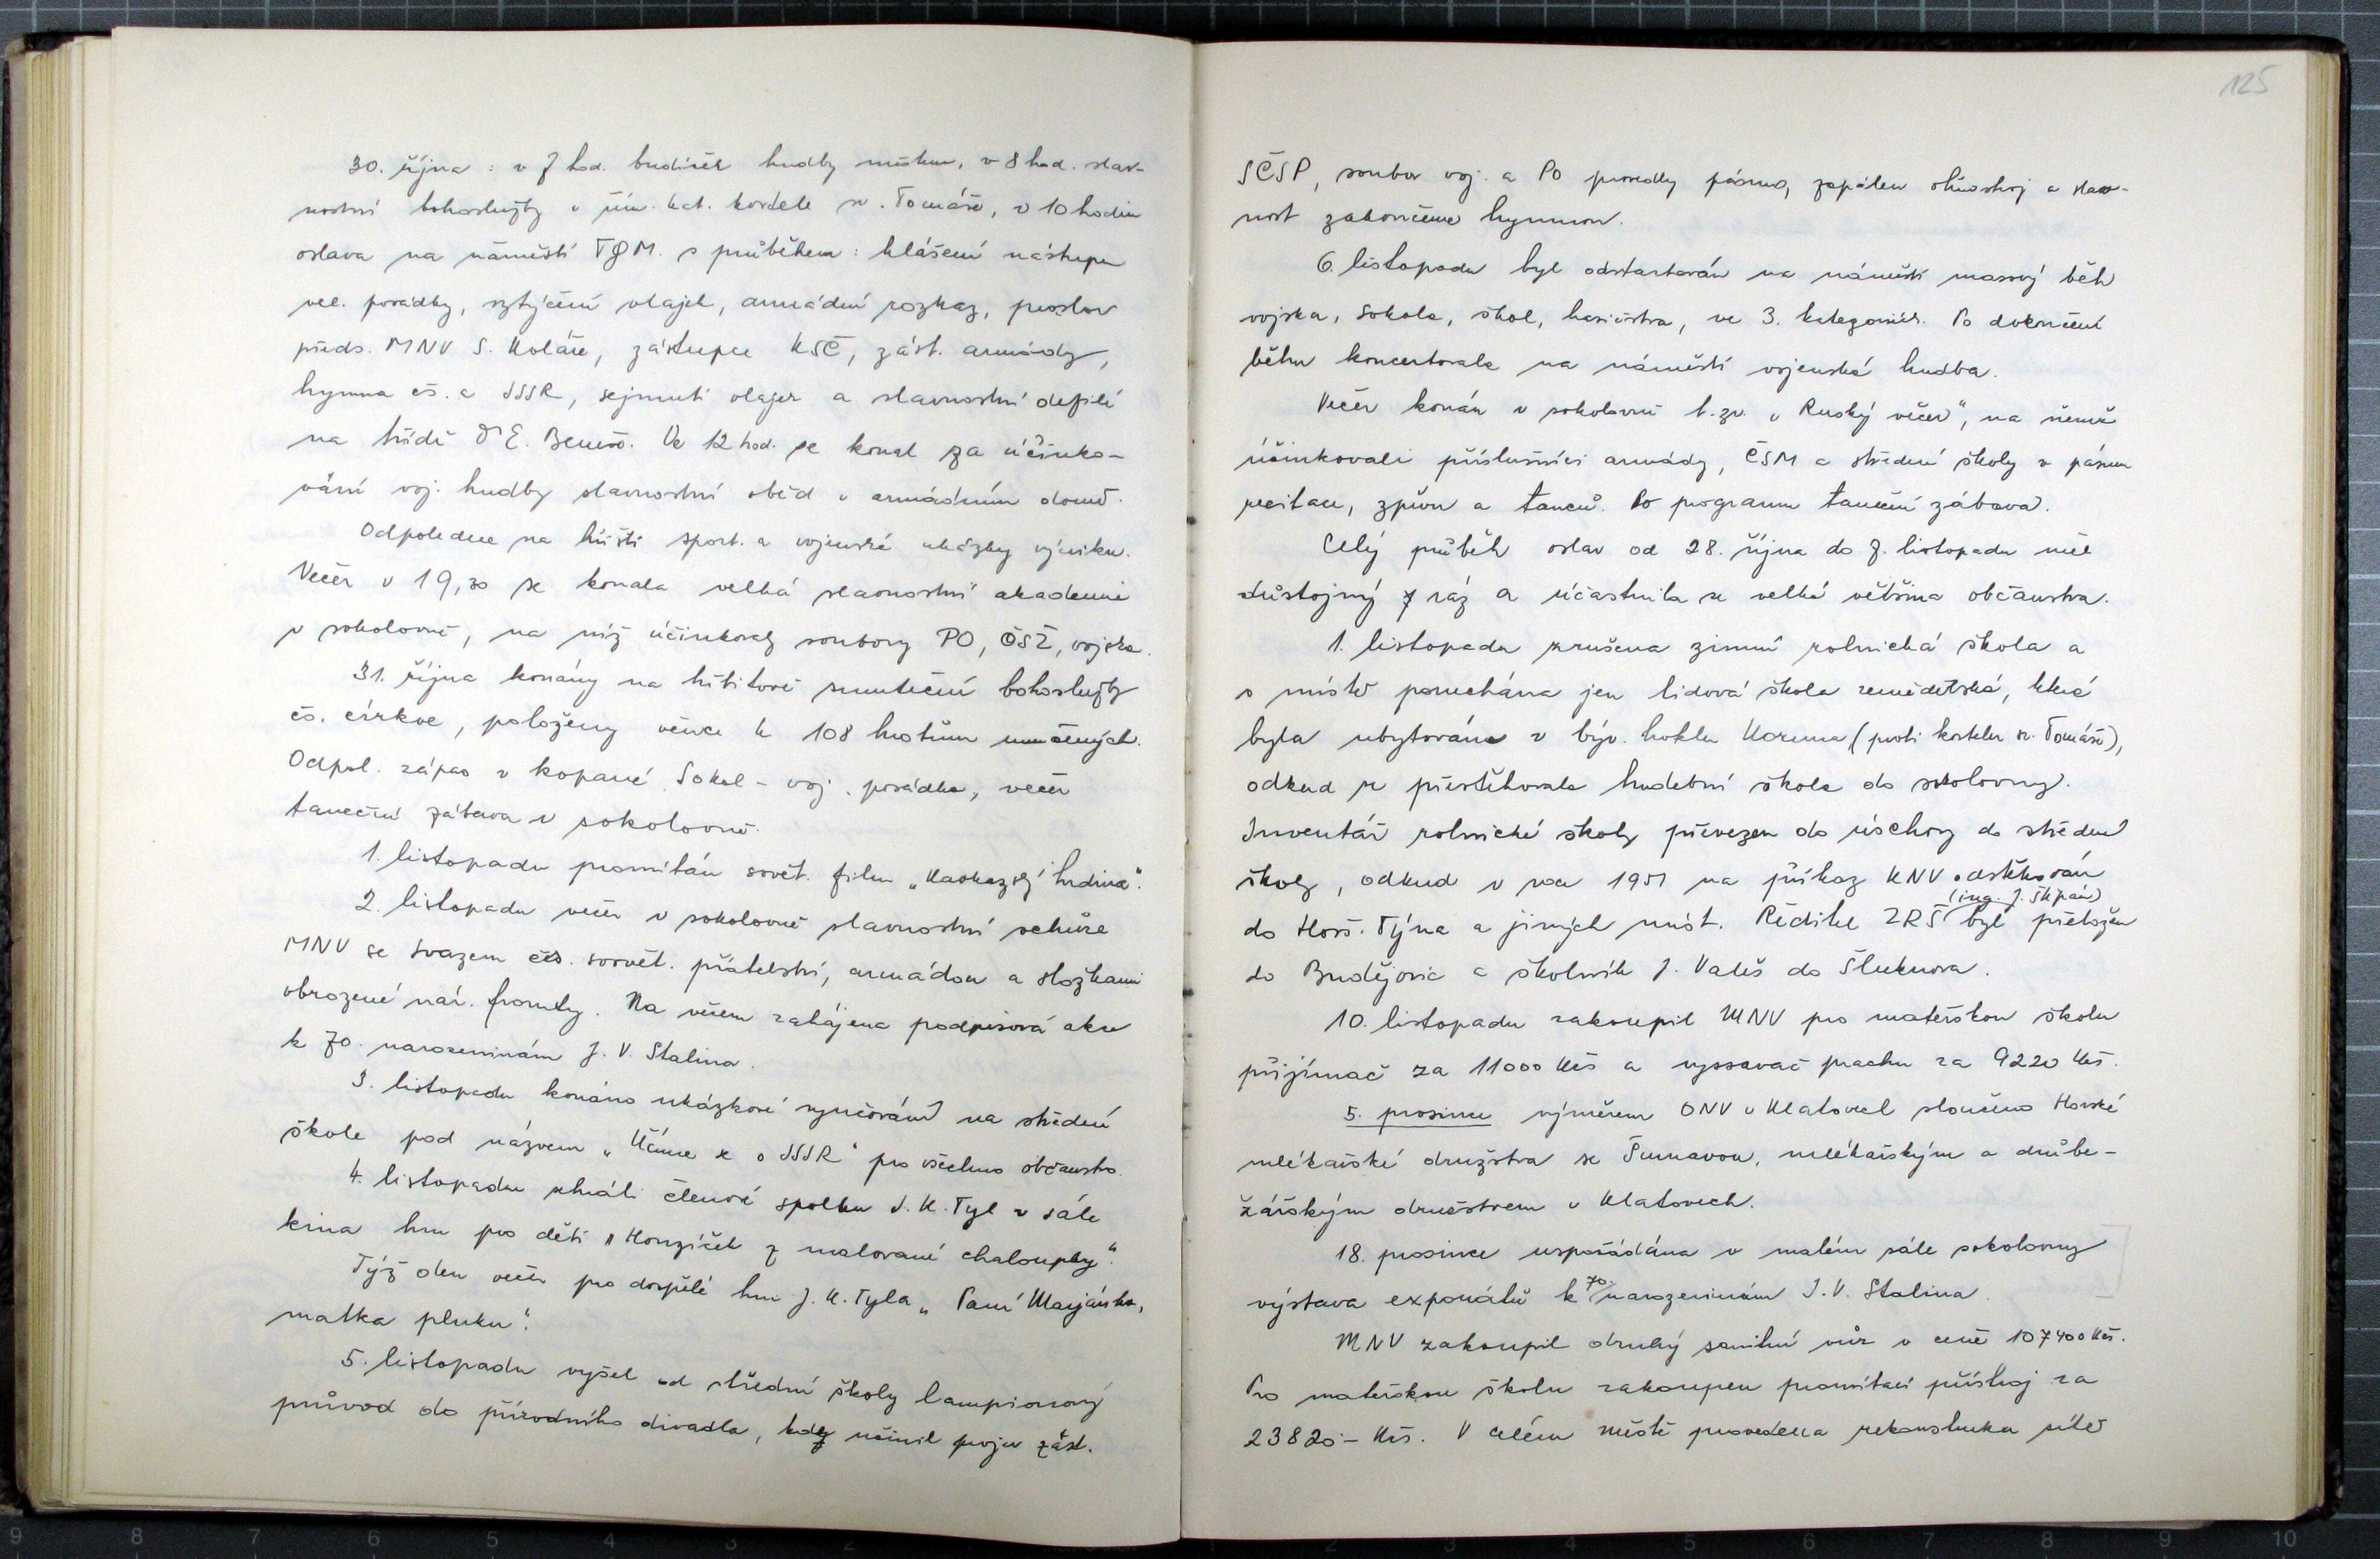 30. října : v 7 hod. budíček hudby městem, v 8 hod. slav-
nostní bohoslužby v řím. kat. kostele sv. Tomáše, v 10 hodin
oslava na náměstí TGM. s průběhem : hlášení nástupu
vel. posádky, vztyčení vlajek, armádní rozkaz, proslov
předs. MNV S. Koláře, zástupce KSČ, zást. armády,
hymna čs. a SSSR, sejmutí vlajek a slavnostní defilé
na třídě Dr E. Beneše. Ve 12 hod. se konal za účinko-
vání voj. hudby slavnostní oběd v armádním domě.
Odpoledne na hřišti sport. a vojenské ukázky výcviku.
Večer v 19,30 se konala velká slavnostní akademie
v sokolovně, na níž účinkovaly soubory PO, ČSŽ, vojska.
31. října konány na hřbitově smuteční bohoslužby
čs. církve, položeny věnce k 108 hrobům umučených.
Odpol. zápas v kopané Sokol - voj. posádka, večer
taneční zábava v sokolovně.
1. listopadu promítán sovět. film „Kavkazský hrdina".
2. listopadu večer v sokolovně slavnostní schůze
MNV se Svazem čs. sovět. přátelství, armádou a složkami
obrozené nár. fronty. Na večeru zahájena podpisová akce
k 70. narozeninám J. V. Stalina.
3. listopadu konáno ukázkové vyučování na střední
škole pod názvem „Učíme se o SSSR" pro všechno občanstvo.
4. listopadu sehráli členové spolku J. K. Tyl v sále
kina hru pro děti „Honzíček z malované chaloupky".
Týž den večer pro dospělé hru J. K. Tyla „Paní Marjánka,
matka pluku".
5. listopadu vyšel od střední školy lampionový
průvod do přírodního divadla, kdy učinil projev zást.
125
SČSP, soubor voj. a PO provedly pásmo, zapálen ohňostroj a slav-
nost zakončena hymnou.
6. listopadu byl odstartován na náměstí masový běh
vojska, Sokola, škol, hasičstva, ve 3. kategoriích. Po dokončení
běhu koncertovala na náměstí vojenská hudba.
Večer konán v sokolovně t. zv. „Ruský večer", na němž
účinkovali příslušníci armády, ČSM a střední školy v pásmu
recitace, zpěvu a tanců. Po programu taneční zábava.
Celý průběh oslav od 28. října do 7. listopadu měl
důstojný ráz a účastnila se velká většina občanstva.
1. listopadu zrušena zimní rolnická škola a
v místě ponechána jen lidová škola zemědělská, která
byla ubytována v býv. hotelu Koruna (proti kostelu sv. Tomáše),
odkud se přestěhovala hudební škola do sokolovny.
Inventář rolnické školy převezen do úschovy do střední
školy, odkud v roce 1951 na příkaz KNV odstěhován
do Horš. Týna a jiných míst. Ředitel ZRŠ (ing. J. Štěpán) byl přeložen
do Budějovic a školník J. Valeš do Šluknova.
10. listopadu zakoupil MNV pro mateřskou školu
přijímač za 11000 Kčs a vyssavač prachu za 9220 Kčs.
5. prosince výměrem ONV v Klatovech sloučeno Horské
mlékařské družstva se Šumavou, mlékařským a drůbe-
žářským družstvem v Klatovech.
18. prosince uspořádána v malém sále sokolovny
výstava exponátů k 70. narozeninám J. V. Stalina.
MNV zakoupil druhý sanitní vůz v ceně 107400 Kčs.
Pro mateřskou školu zakoupen promítací přístroj za
23820.- Kčs. V celém městě provedena rekonstrukce sítě
9 8 7 6 5 4 3 2 2 3 4 5 6 7 8 9 10